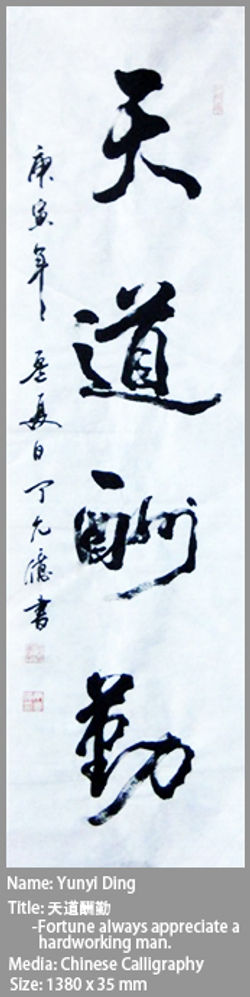 天道酬勤
庚寅年夏日丁允書
Name: Yunyi Ding
Title: 天道酬勤
-Fortune always appreciate a
hardworking man.
Media: Chinese Calligraphy
Size: 1380 x 35 mm